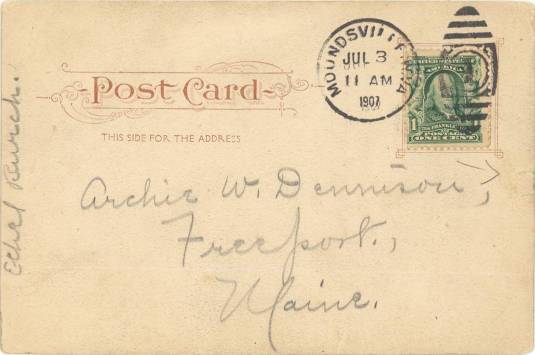 Post Card
THIS SIDE FOR THE ADDRESS
MOUNDSVILLE, W.VA.
JUL 3
11 AM
1907
FRANKLIN
POSTAGE
ONE CENT
1
Archie W. Dennison,
Freeport,
Maine.
Ethel